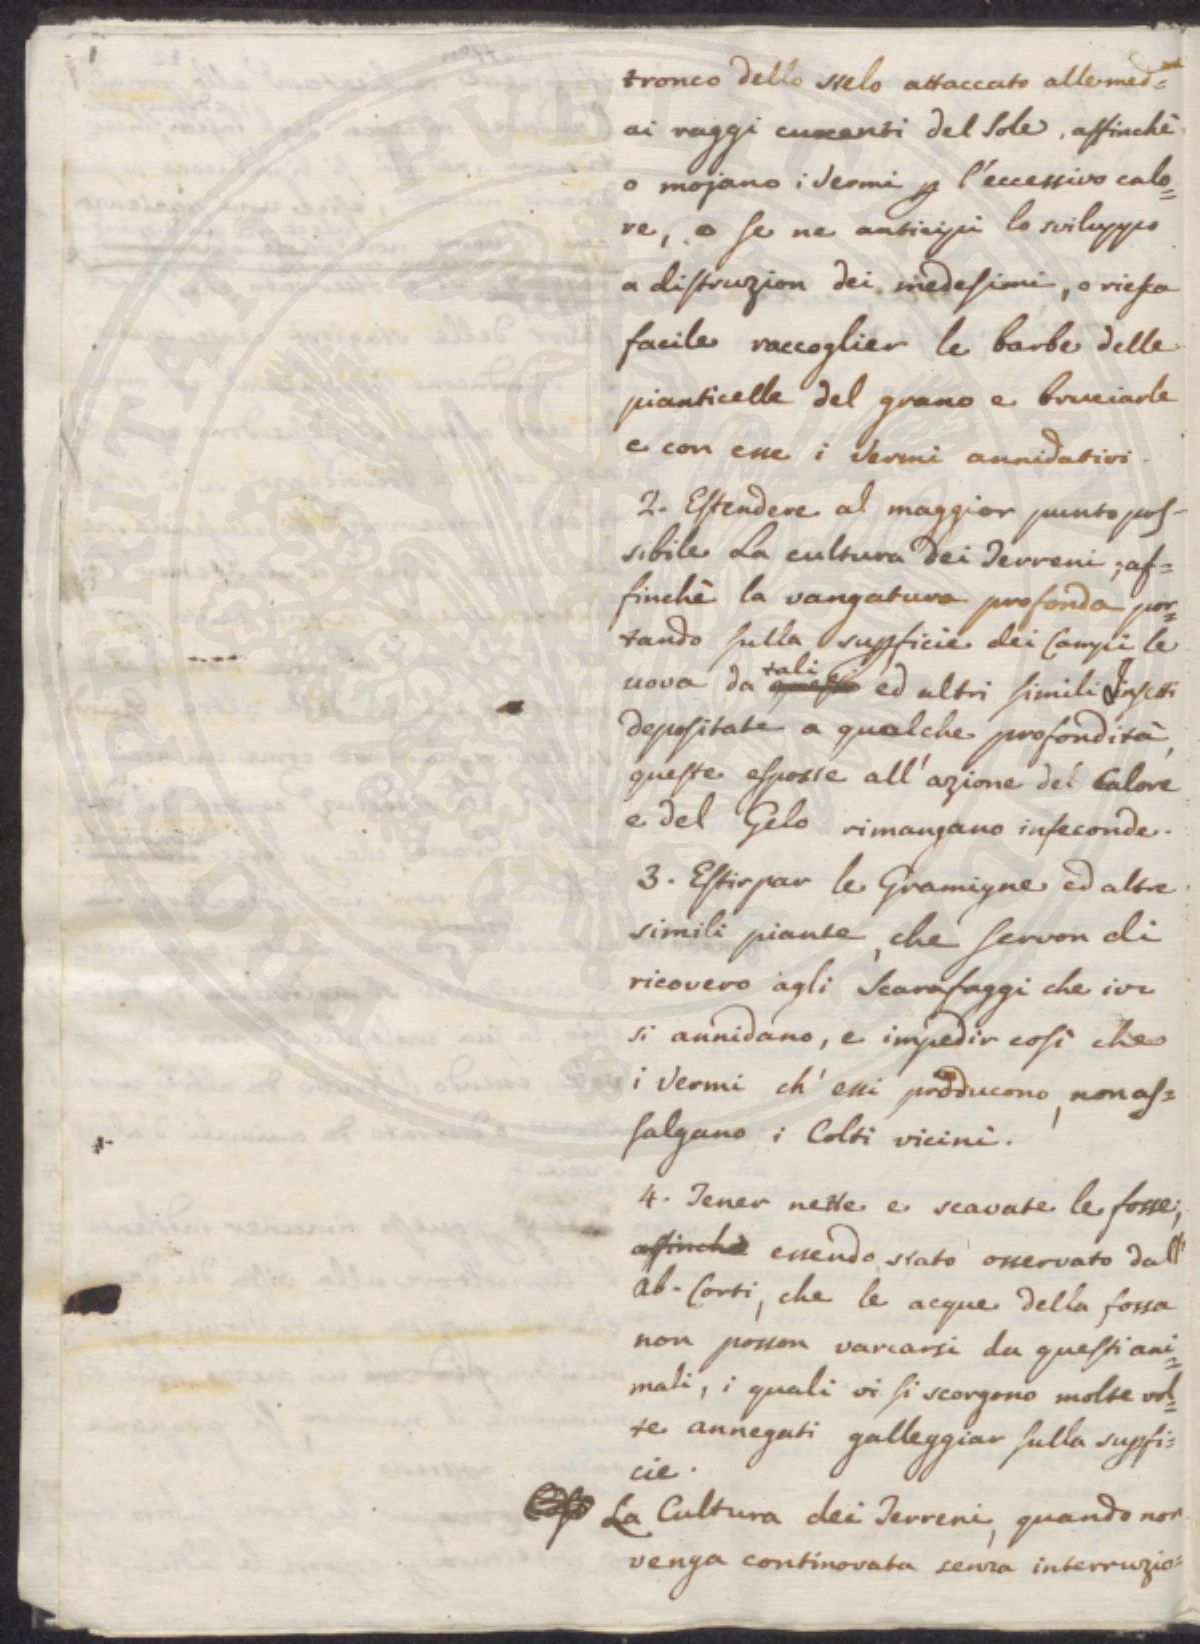 tronco dello stelo attaccato alle med=
ai raggi cuocenti del Sole, affinchè
o mojano i Vermi p l'eccessivo calo=
re, o se ne anticipi lo sviluppo
a distruzion dei medesimi, o riesca
facile raccoglier le barbe delle
pianticelle del grano e bruciarle
e con esse i Vermi annidativi.
2. Estendere al maggior punto pos-
sibile La cultura dei Terreni, af=
finchè la vangatura profonda por=
tando sulla supficie dei Campi le
uova da tali ed altri simili Insetti
depositate a qualche profondità,
queste esposte all'azione del Calore
e del Gelo rimangano infeconde.
3. Estirpar le Gramigne ed altre
simili piante, che servon di
ricovero agli Scarafaggi che ivi
si annidano, e impedir così che
i Vermi ch'essi producono, non as=
salgano i Colti vicini.
4. Tener nette e scavate le fosse,
affinchè essendo stato osservato dall'
Ab. Corti, che le acque della fossa
non posson varcarsi da questi ani=
mali, i quali vi si scorgono molte vol=
te annegati galleggiar sulla supfi=
cie.
La Cultura dei Terreni, quando non
venga continovata senza interruzio=
PROSPERITATE PUBLICAE